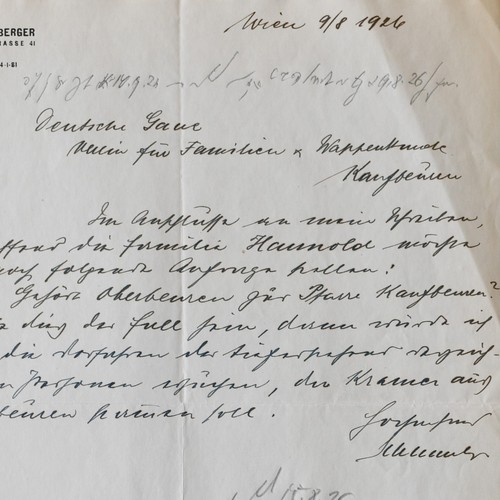 BERGER
RASSE 41
4-1-81
Wien 9/8 1926
19.8.26
Deutsche Gaue
Verein für Familien & Wappenkunde
Kaufbeuren
Im Anschlusse an mein Schreiben,
die Familie Hannold möchte
noch folgende Anfrage stellen:
Gehört Oberbeuren zur Pfarre Kaufbeuren?
dies der Fall sein, dann würde ich
die Vorfahren der tieferstehend verzeich-
Personen suchen, der Kramer aus
beuren stammen soll.
15.8.26